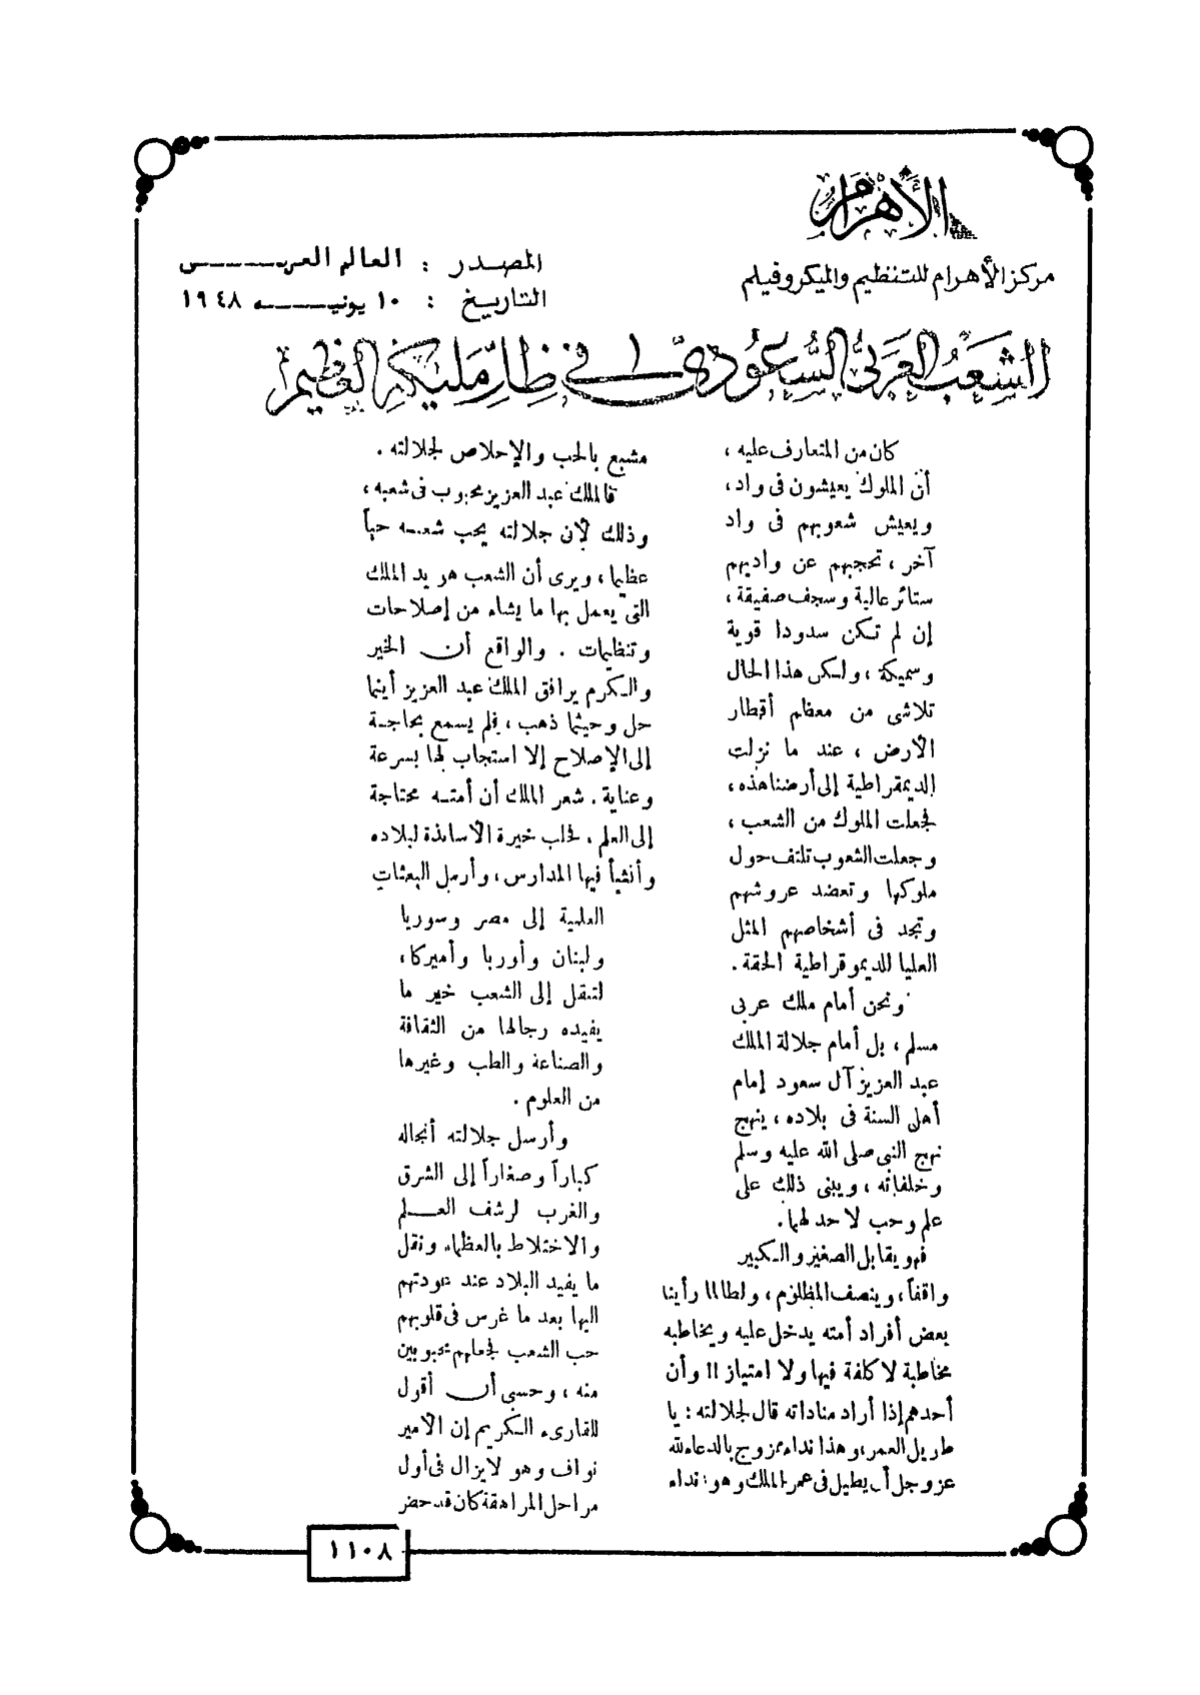 الأهرام
مركز الأهرام للتنظيم والميكروفيلم
المصدر : العالم العربى
التاريخ : ١٠ يونيه ١٩٤٨
الشعب العربى السعودى فى ظل مليكه العظيم
كان من المتعارف عليه ،
أن الملوك يعيشون فى واد ،
ويعيش شعوبهم فى واد
آخر ، تحجبهم عن واديهم
ستائر عالية وسجف صفيقة ،
إن لم تكن سدودا قوية
وسميكة ، ولكن هذا الحال
تلاشى من معظم أقطار
الأرض ، عند ما نزلت
الديمقراطية إلى أرضنا هذه ،
فجعلت الملوك من الشعب ،
وجعلت الشعوب تلتف حول
ملوكها وتعضد عروشهم
وتجد فى أشخاصهم المثل
العليا للديموقراطية الحقة .
ونحن أمام ملك عربى
مسلم ، بل أمام جلالة الملك
عبد العزيز آل سعود إمام
أهل السنة فى بلاده ، ينهج
نهج النبى صلى الله عليه وسلم
وخلفائه ، ويبنى ذلك على
علم وحب لا حد لهما .
فهو يقابل الصغير والكبير
واقفاً ، وينصف المظلوم ، ولطالما رأينا
بعض أفراد أمته يدخل عليه ويخاطبه
مخاطبة لا كلفة فيها ولا امتياز !! وأن
أحدهم إذا أراد مناداته قال لجلالته : يا
طويل العمر ، وهذا نداء ممزوج بالدعاء لله
عز وجل أن يطيل فى عمر الملك وهو نداء
مشبع بالحب والإحلاص لجلالته .
فالملك عبد العزيز محبوب فى شعبه ،
وذلك لأن جلالته يحب شعبه حباً
عظيما ، ويرى أن الشعب هو يد الملك
التى يعمل بها ما يشاء من إصلاحات
وتنظيمات . والواقع أن الخير
والكرم يرافق الملك عبد العزيز أينما
حل وحيثما ذهب ، فلم يسمع بحاجة
إلى الإصلاح إلا استجاب لها بسرعة
وعناية . شعر الملك أن أمته محتاجة
إلى العلم . فجلب خيرة الأساتذة لبلاده
وأنشأ فيها المدارس ، وأرسل البعثات
العلمية إلى مصر وسوريا
ولبنان وأوربا وأميركا ،
لتنقل إلى الشعب خير ما
يفيده رجالها من الثقافة
والصناعة والطب وغيرها
من العلوم .
وأرسل جلالته أنجاله
كباراً وصغاراً إلى الشرق
والغرب لرشف العلم
والاختلاط بالعظماء ونقل
ما يفيد البلاد عند عودتهم
اليها بعد ما غرس فى قلوبهم
حب الشعب فجعلهم محبوبين
منه ، وحسبى أن أقول
للقارىء الكريم إن الأمير
نواف وهو لا يزال فى أول
مراحل المراهقة كان قد حضر
١١٠٨